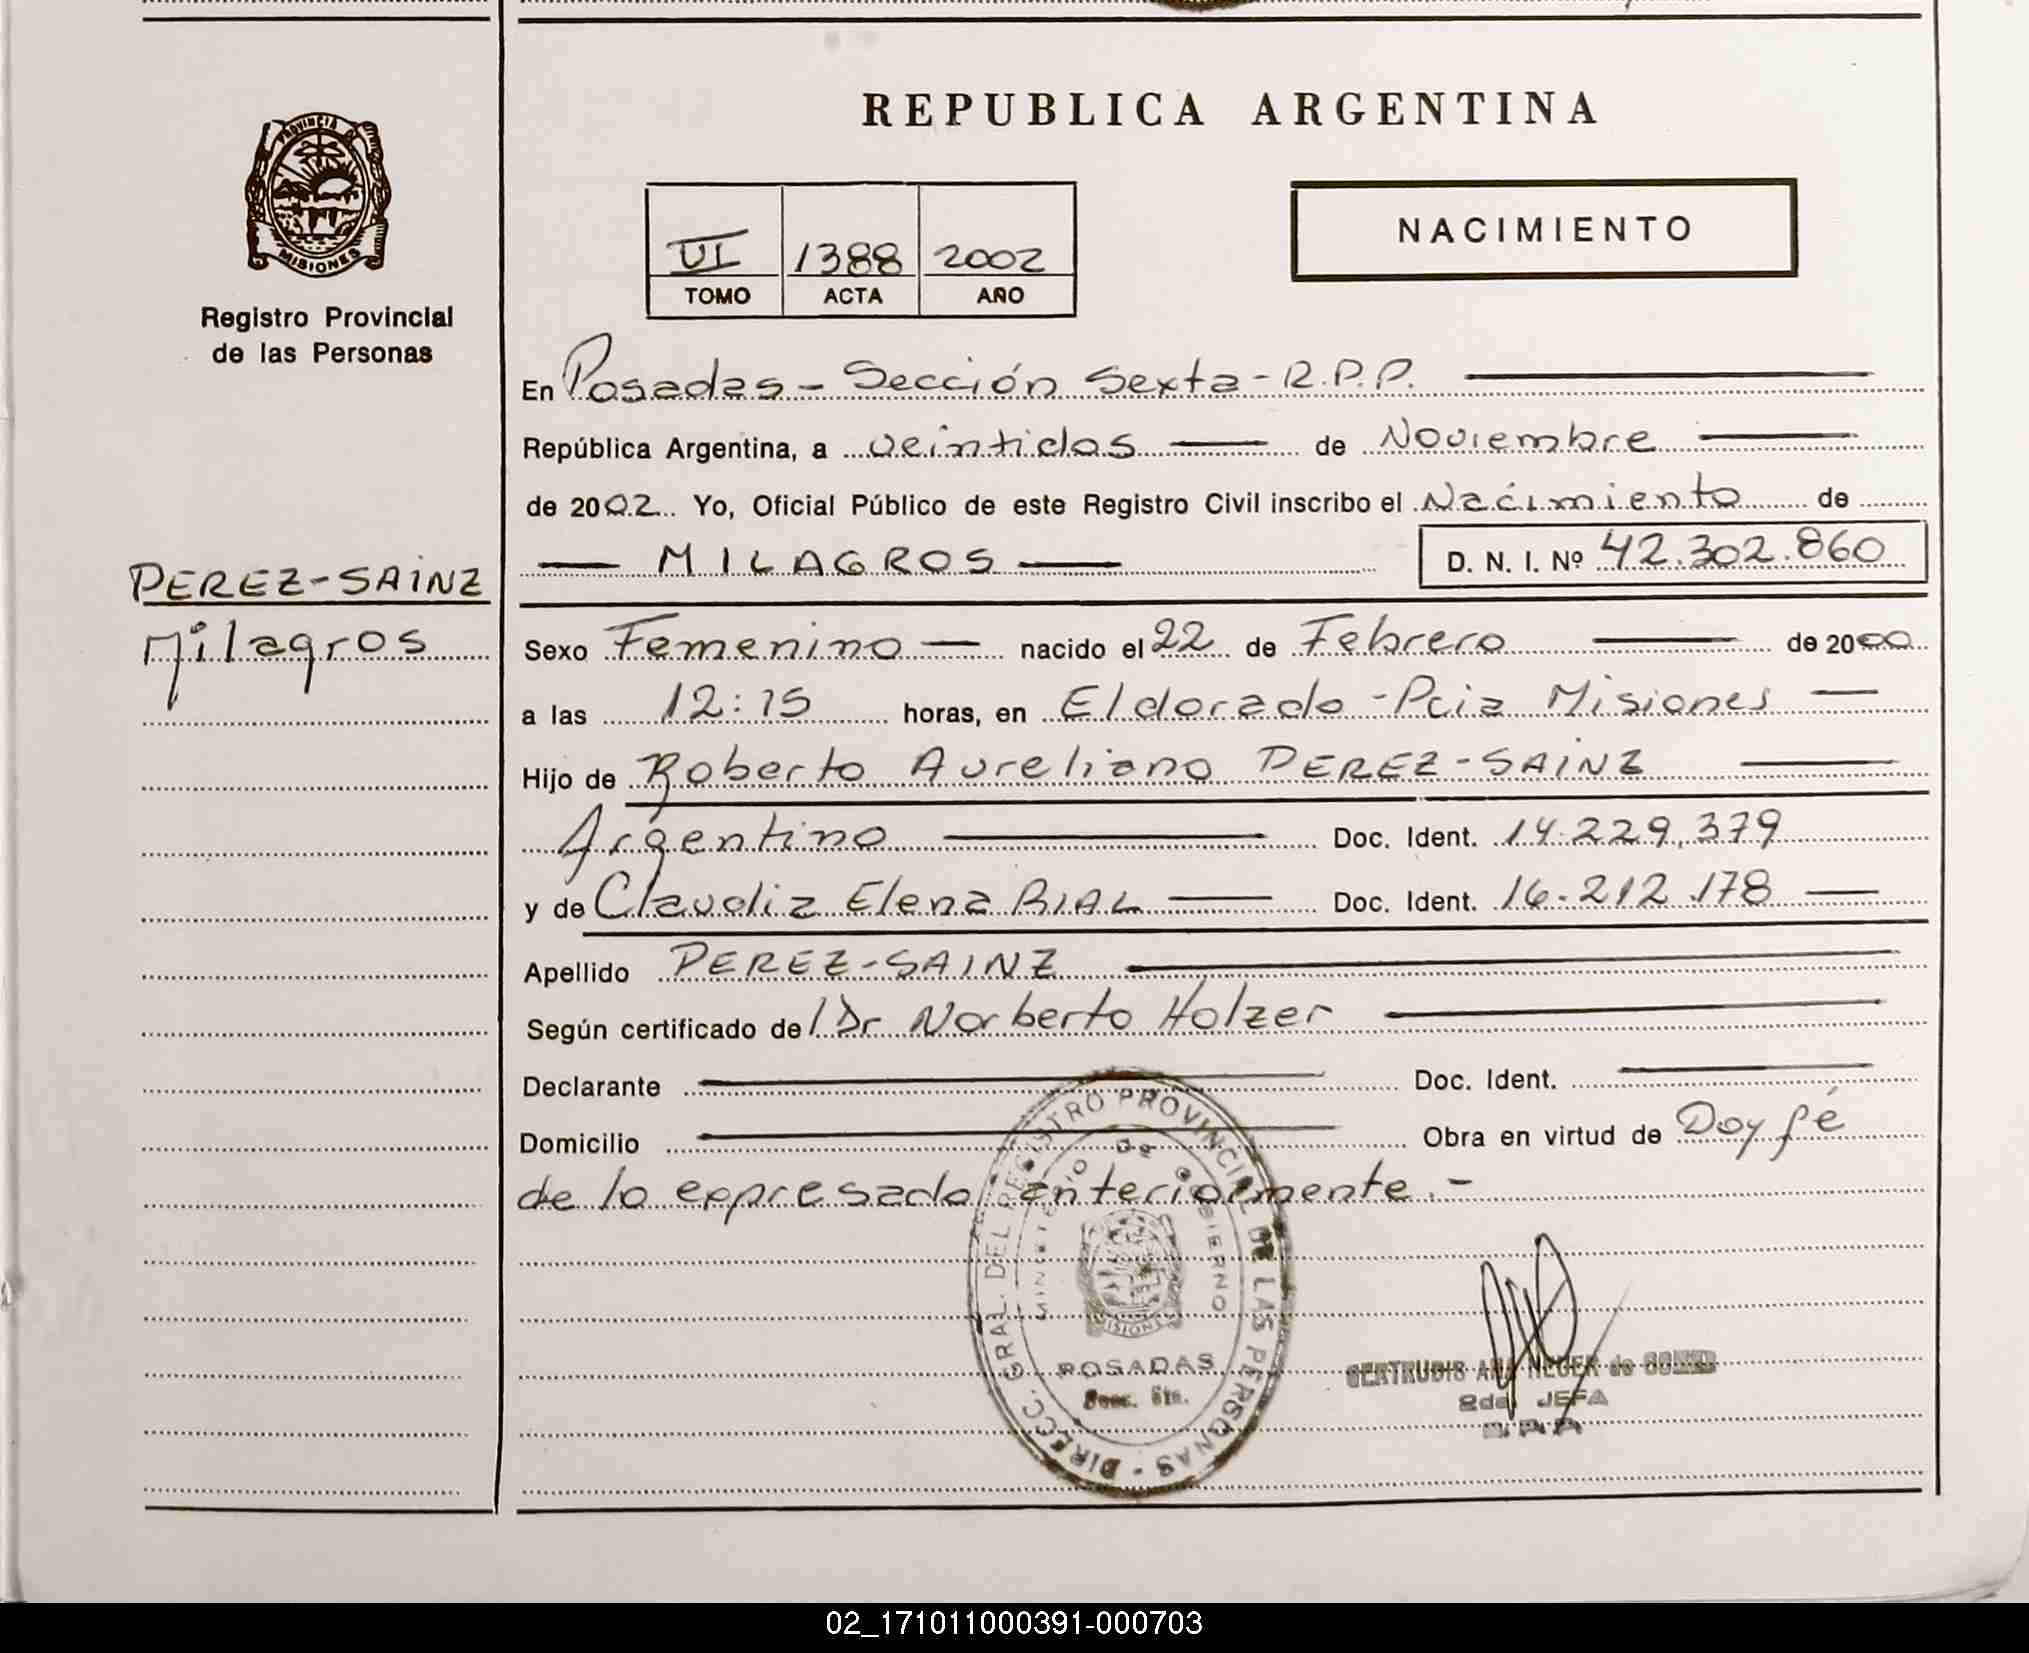 REPUBLICA ARGENTINA
PROVINCIA DE
MISIONES
Registro Provincial
de las Personas
NACIMIENTO
VI 1388 2002
TOMO ACTA AÑO
En Posadas - Sección Sexta - R.P.P.
República Argentina, a veintidos de Noviembre
de 2002 Yo, Oficial Público de este Registro Civil inscribo el Nacimiento de
MILAGROS D. N. I. Nº 42.302.860
PEREZ-SAINZ
Milagros
Sexo Femenino nacido el 22 de Febrero de 2000
a las 12:15 horas, en Eldorado - Pcia Misiones
Hijo de Roberto Aureliano PEREZ-SAINZ
Argentino Doc. Ident. 14.229.379
y de Claudia Elena RIAL Doc. Ident. 16.212.178
Apellido PEREZ-SAINZ
Según certificado de Dr Norberto Holzer
Declarante Doc. Ident.
Domicilio Obra en virtud de Doy fé
de lo expresado anteriormente.-
DIRECC. GRAL. DEL REGISTRO PROVINCIAL DE LAS PERSONAS
MINISTERIO DE GOBIERNO
MISIONES
POSADAS
Secc. 6ta.
GERTRUDIS ANA de
2da. JEFA
R.P.P.
02_171011000391-000703